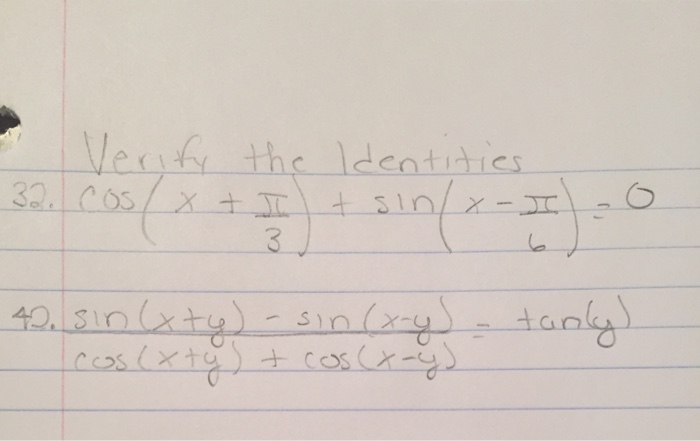 Verify the Identities
32. cos(x + π/3) + sin(x - π/6) = 0
42. sin(x+y) - sin(x-y) = tan(y)
cos(x+y) + cos(x-y)